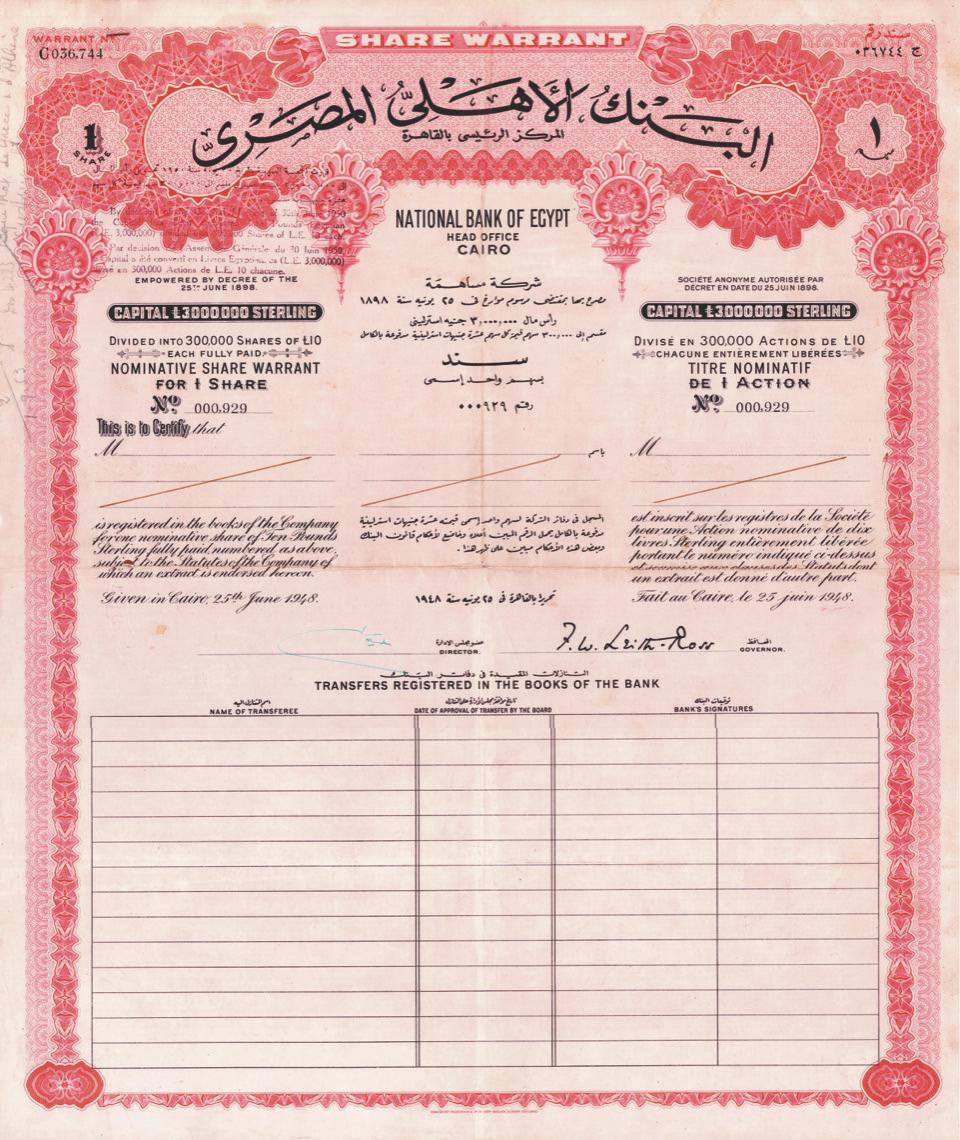 SHARE WARRANT
WARRANT Nº
C036.744
سند رقم
ج ٠٣٦٧٤٤
البنك الأهلى المصرى
المركز الرئيسى بالقاهرة
1
SHARE
١
سهم
NATIONAL BANK OF EGYPT
HEAD OFFICE
CAIRO
30 Juin 1950
L.E. 3,000,000)
Shares of L.E. 10
Par decision Assemblée Générale du 30 Juin 1950
Capital a été converti en Livres Egyptiennes (L.E. 3,000,000)
divisé en 300,000 Actions de L.E. 10 chacune.
EMPOWERED BY DECREE OF THE
25TH JUNE 1898.
CAPITAL £3000000 STERLING
DIVIDED INTO 300,000 SHARES OF £10
EACH FULLY PAID.
NOMINATIVE SHARE WARRANT
FOR 1 SHARE
Nº 000,929
This is to Certify that
M
is registered in the books of the Company
for one nominative share of Ten Pounds
Sterling fully paid, numbered as above,
subject to the Statutes of the Company of
which an extract is endorsed hereon.
Given in Cairo, 25th June 1948.
شركة مساهمة
مصرح بها بمقتضى مرسوم مؤرخ فى ٢٥ يونيه سنة ١٨٩٨
رأس مال ٣,٠٠٠,٠٠٠ جنيه استرلينى
مقسم إلى ٣٠٠,٠٠٠ سهم قيمة كل سهم عشرة جنيهات استرلينية مدفوعة بالكامل
سند
بسهم واحد إسمى
رقم ٠٠٠٩٢٩
باسم
المسجل فى دفاتر الشركة لسهم واحد إسمى قيمته عشرة جنيهات استرلينية
مدفوعة بالكامل يحمل الرقم المبين أعلاه وخاضع لأحكام قانون البنك
وبعض هذه الأحكام مبين على ظهر هذا.
تحريرا بالقاهرة فى ٢٥ يونيه سنة ١٩٤٨
SOCIÉTÉ ANONYME AUTORISÉE PAR
DÉCRET EN DATE DU 25 JUIN 1898.
CAPITAL £3000000 STERLING
DIVISÉ EN 300,000 ACTIONS DE £10
CHACUNE ENTIÈREMENT LIBÉRÉES
TITRE NOMINATIF
DE 1 ACTION
Nº 000,929
M
est inscrit sur les registres de la Société
pour une Action nominative de dix
livres Sterling entièrement libérée
portant le numéro indiqué ci-dessus
et soumise aux clauses des Statuts dont
un extrait est donné d'autre part.
Fait au Caire, le 25 juin 1948.
عضو مجلس الإدارة
DIRECTOR.
F. W. Leith-Ross
المحافظ
GOVERNOR.
التنازلات المقيدة فى دفاتر البنك
TRANSFERS REGISTERED IN THE BOOKS OF THE BANK
اسم المتنازل اليه
NAME OF TRANSFEREE
DATE OF APPROVAL OF TRANSFER BY THE BOARD
توقيعات البنك
BANK'S SIGNATURES